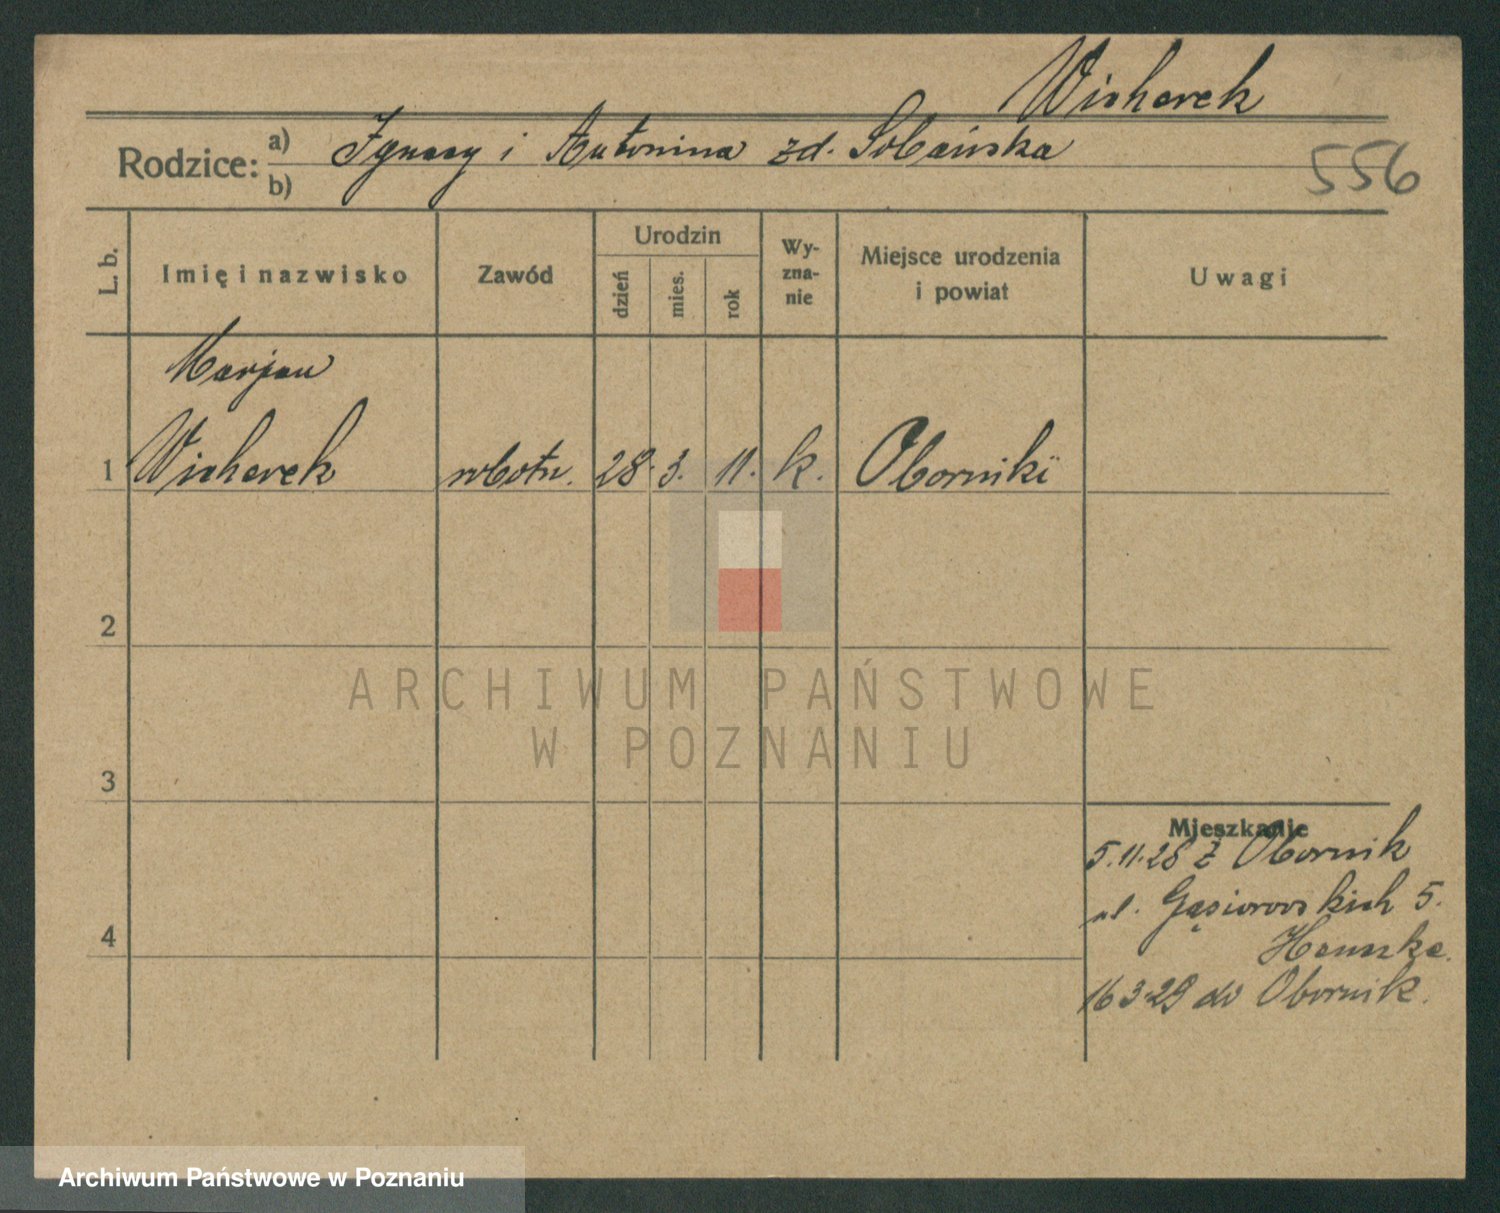 Wicherek
Rodzice: a) Ignacy i Antonina zd. Sobańska
b)
556
L. b. Imię i nazwisko Zawód Urodzin dzień mies. rok Wy-zna-nie Miejsce urodzenia i powiat Uwagi
Marjan
1 Wicherek robotn. 28. 3. 11. k. Oborniki
2
ARCHIWUM PAŃSTWOWE
W POZNANIU
3
Mieszkanie
5.11.28 z Obornik
ul. Gąsiorowskich 5.
4
16 3.29 do Obornik.
Archiwum Państwowe w Poznaniu